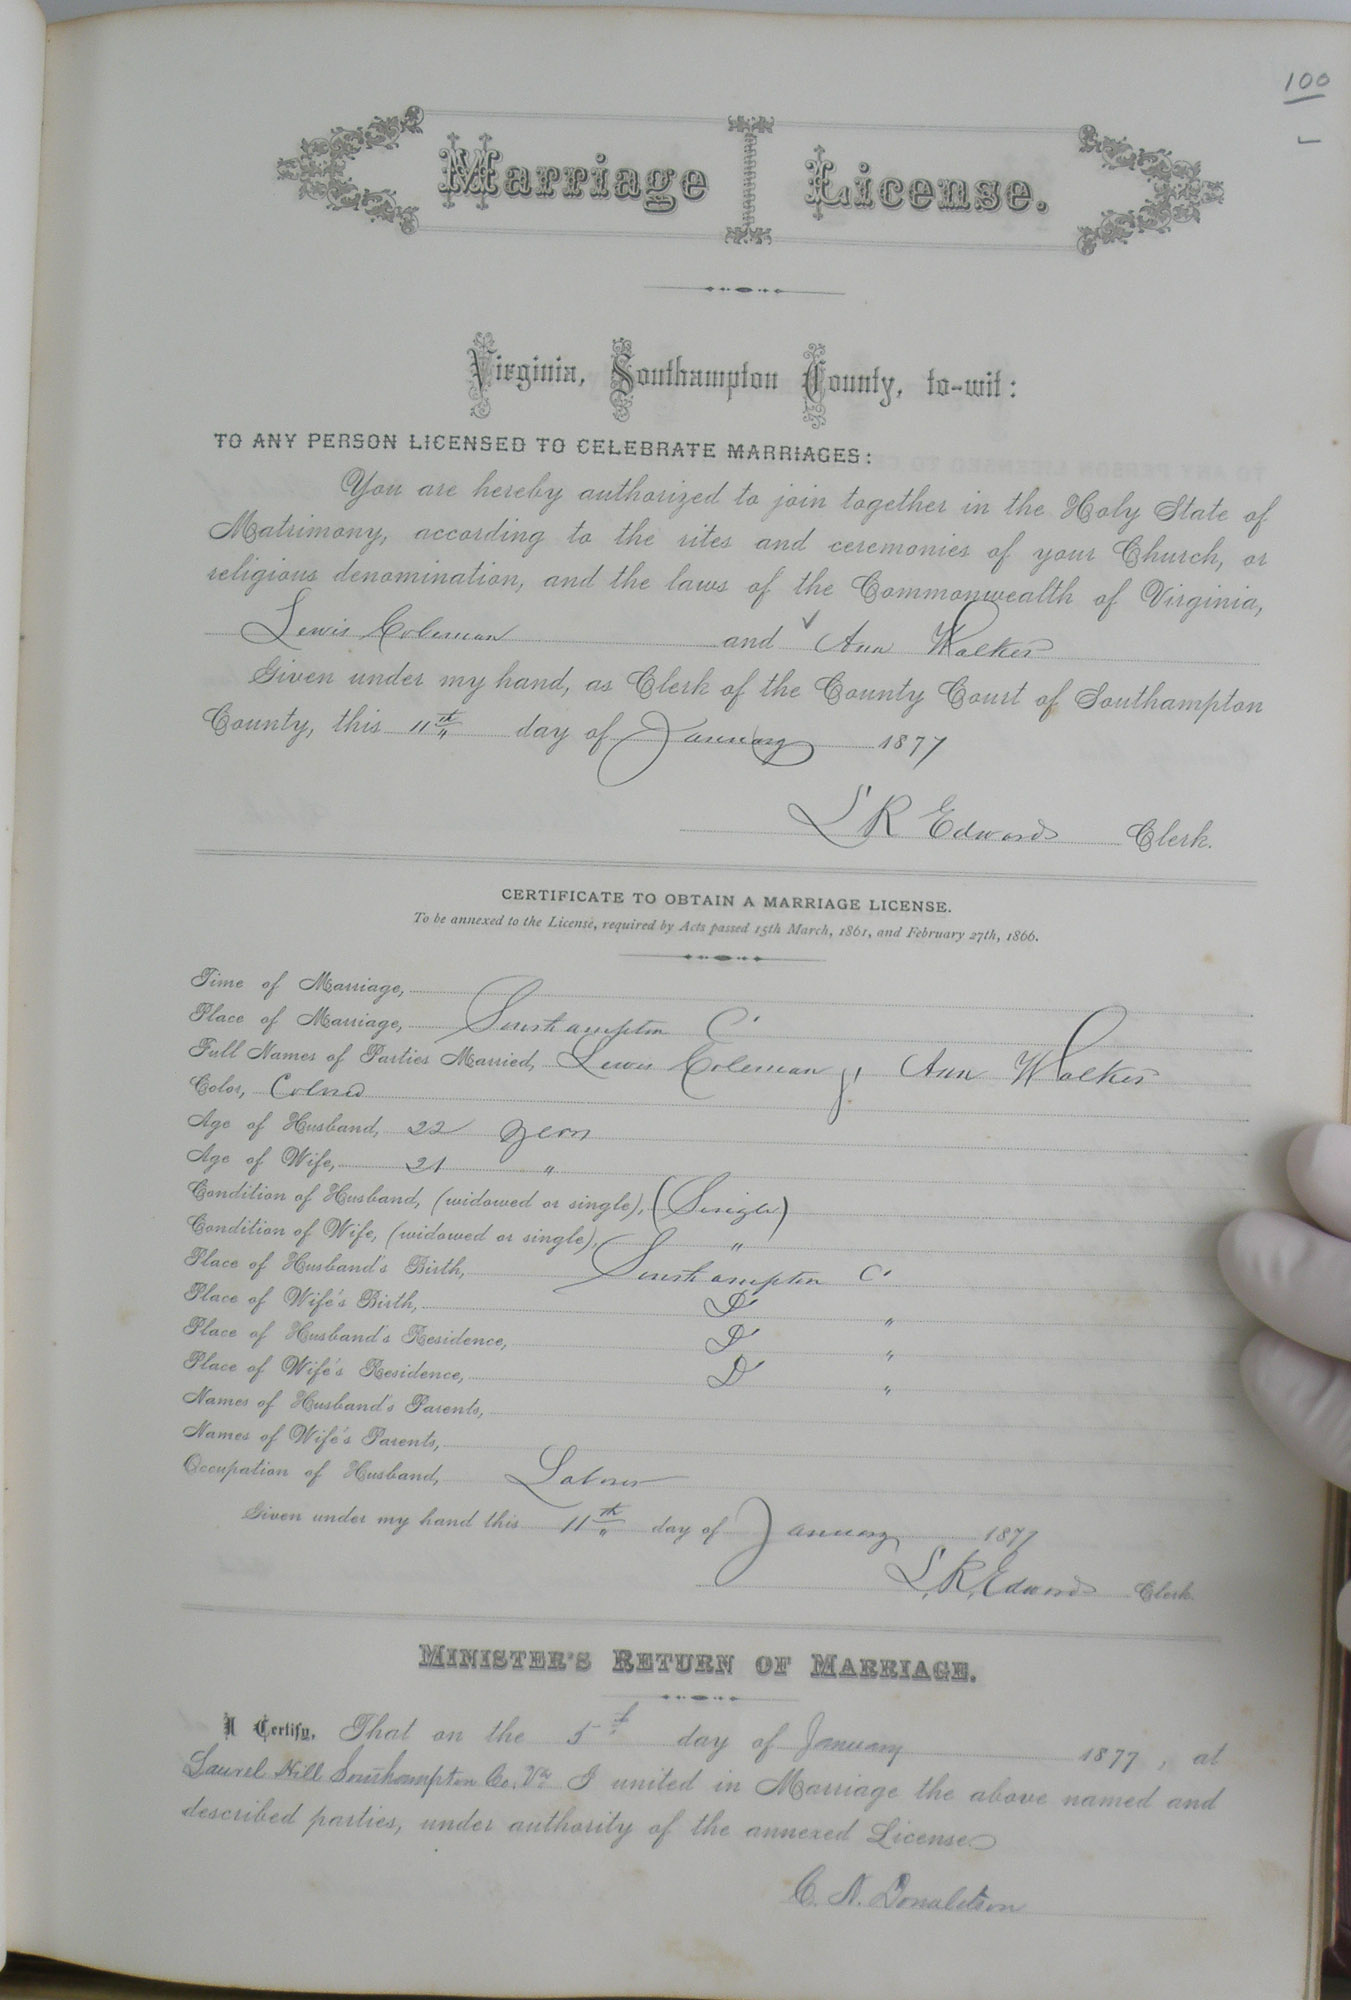 100
Marriage License.
Virginia, Southampton County, to-wit:
TO ANY PERSON LICENSED TO CELEBRATE MARRIAGES:
You are hereby authorized to join together in the Holy State of
Matrimony, according to the rites and ceremonies of your Church, or
religious denomination, and the laws of the Commonwealth of Virginia,
Lewis Coleman and ✓ Ann Walker
Given under my hand, as Clerk of the County Court of Southampton
County, this 11th day of January 1877
L R Edwards Clerk.
CERTIFICATE TO OBTAIN A MARRIAGE LICENSE.
To be annexed to the License, required by Acts passed 15th March, 1861, and February 27th, 1866.
Time of Marriage,
Place of Marriage, Southampton Co
Full Names of Parties Married, Lewis Coleman & Ann Walker
Color, Colored
Age of Husband, 22 years
Age of Wife, 21 "
Condition of Husband, (widowed or single), (Single)
Condition of Wife, (widowed or single), "
Place of Husband's Birth, Southampton Co
Place of Wife's Birth, Do "
Place of Husband's Residence, Do "
Place of Wife's Residence, Do "
Names of Husband's Parents,
Names of Wife's Parents,
Occupation of Husband, Laborer
Given under my hand this 11th day of January 1877
L. R. Edwards Clerk.
MINISTER'S RETURN OF MARRIAGE.
I Certify, That on the 5th day of January 1877, at
Laurel Hill Southampton Co. Va I united in Marriage the above named and
described parties, under authority of the annexed License
C. N. Donaldson